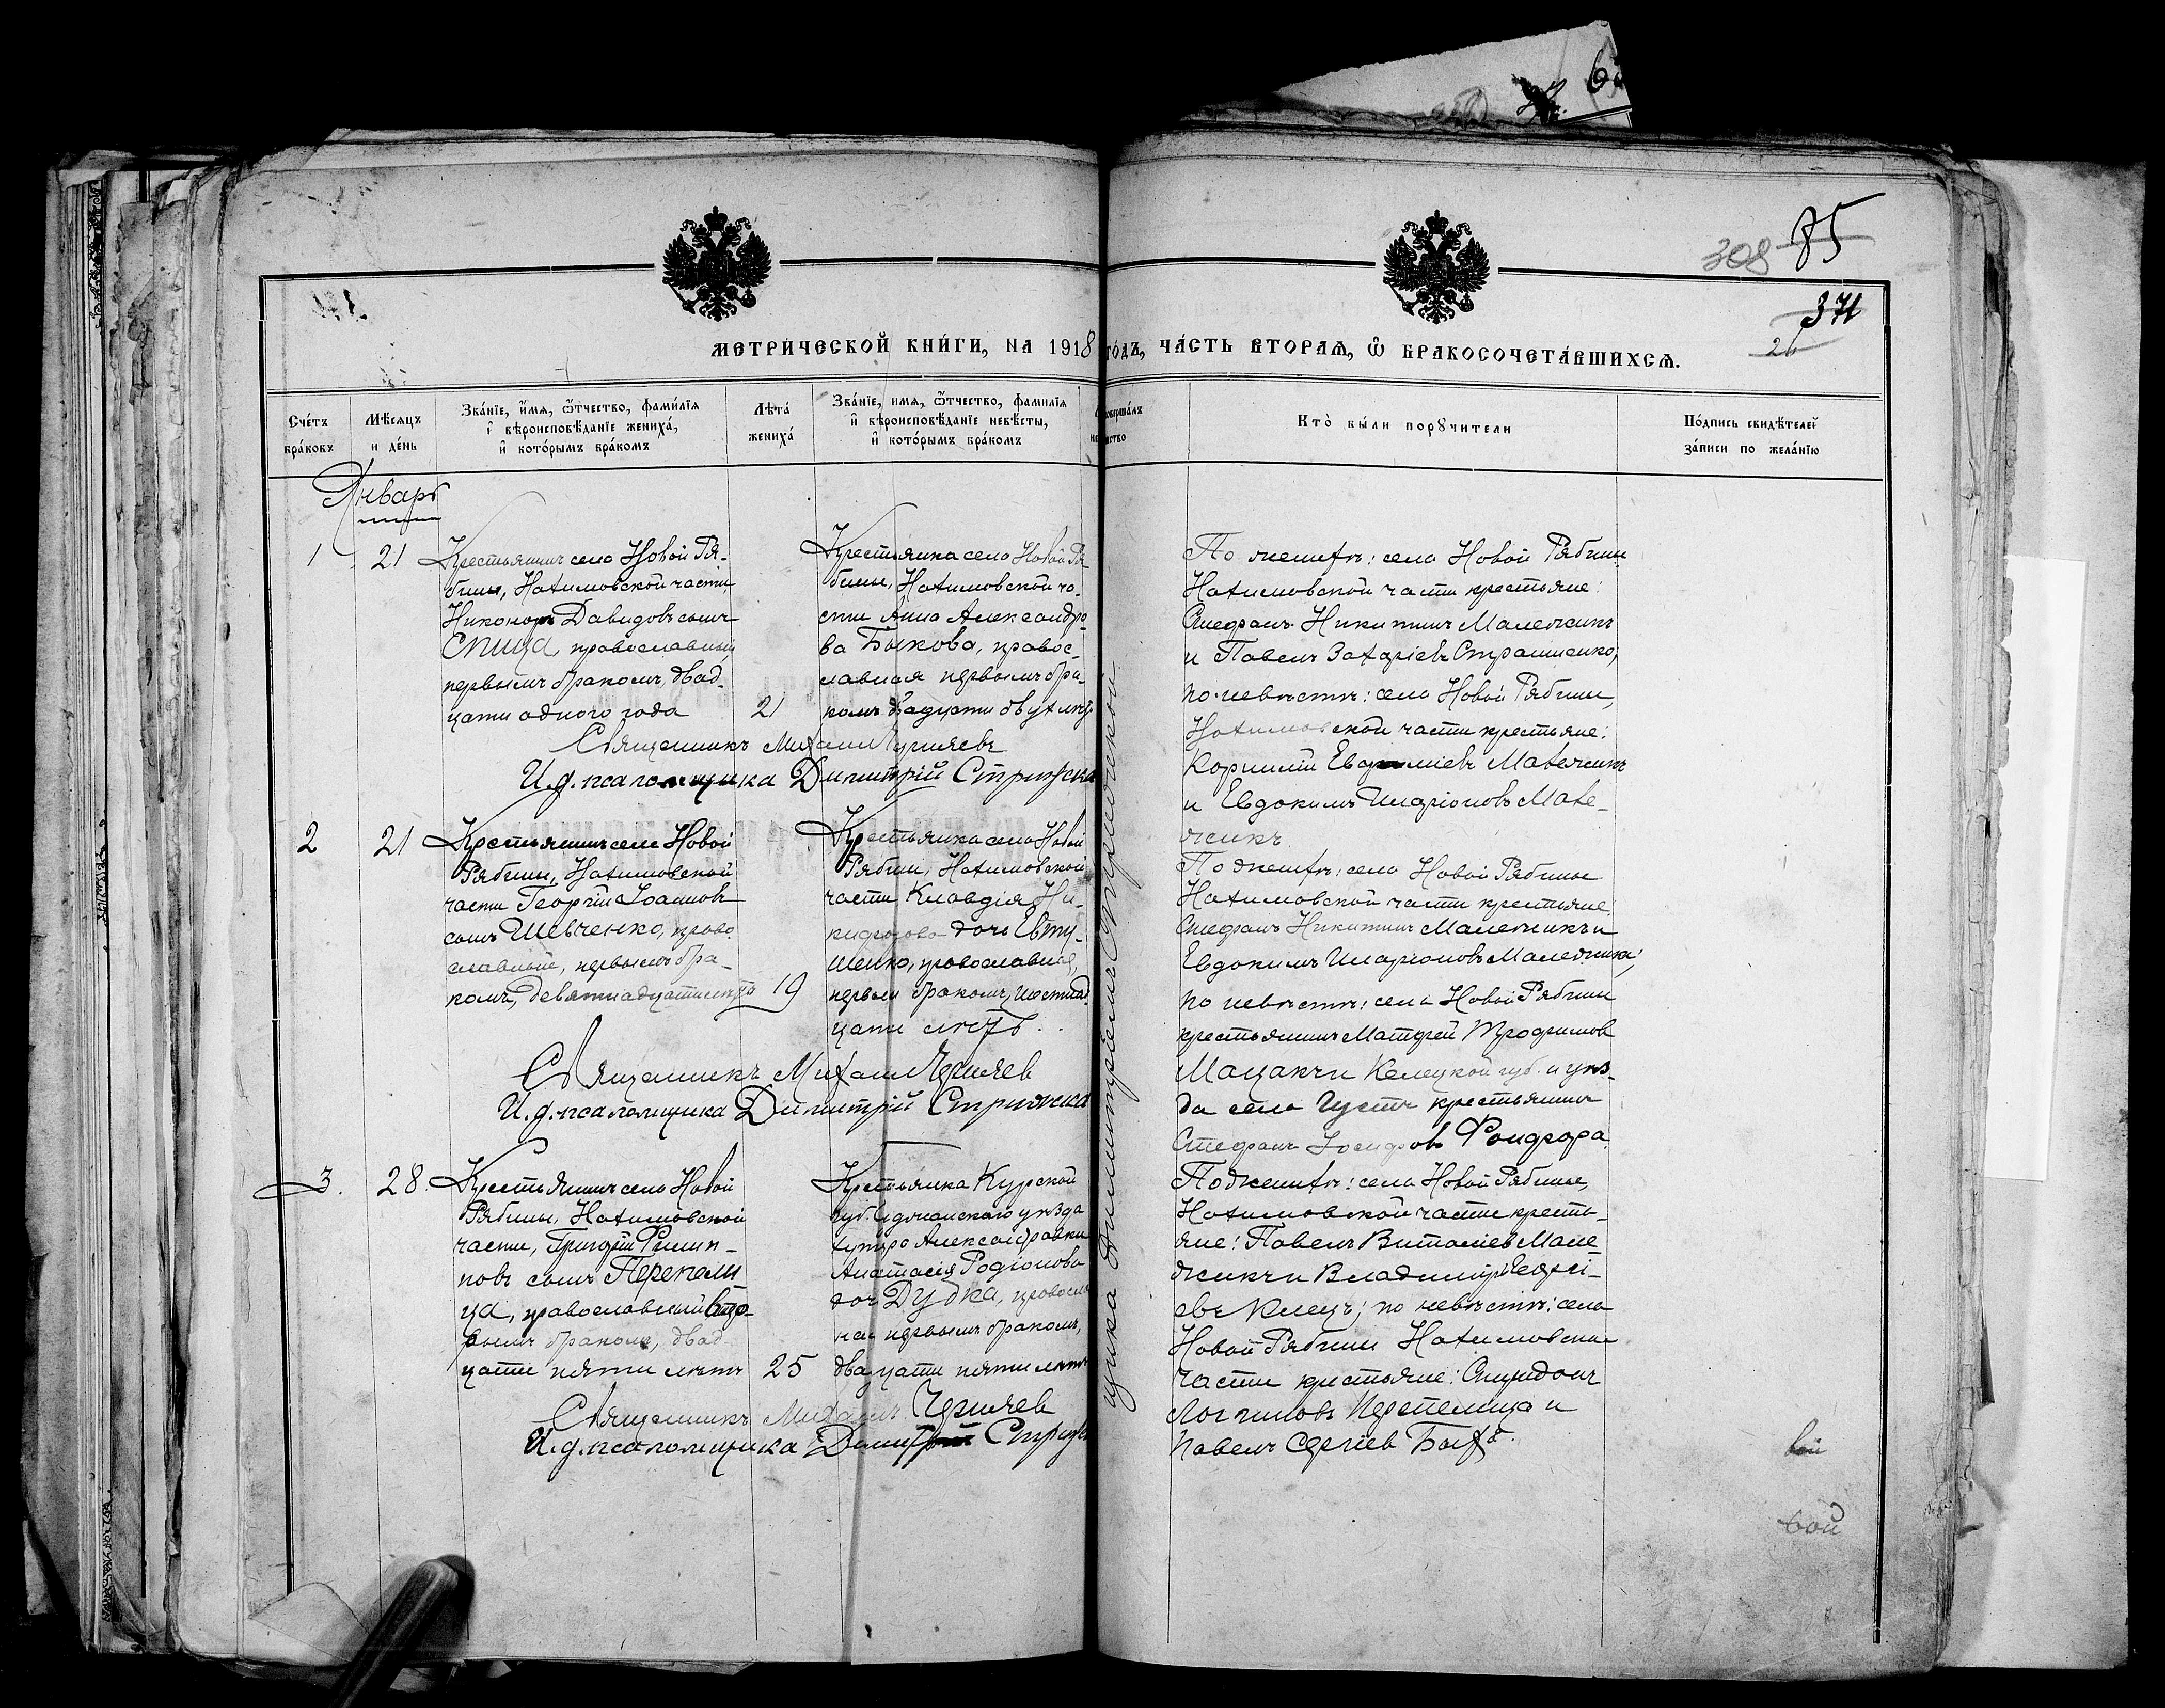 308 85
371
26
МЕТРИ́ЧЕСКОЙ КНИ́ГИ, НА 1918 ГО́ДЪ, ЧА́СТЬ ВТОРАѦ, Ѡ҆ БРАКОСОЧЕТА́ВШИХСѦ.
Сче́тъ
бра́ковъ
Мѣ́сѧцъ
и де́нь
Зва́нїе, и҆́мѧ, ѻ҆́тчество, фами́лїѧ
и҆ вѣроисповѣ́данїе жениха̀,
и҆ кото́рымъ бра́комъ
Лѣ́та
жениха̀
Зва́нїе, имѧ, ѻ҆́тчество, фамилїѧ
и҆ вѣроисповѣ́данїе невѣ́сты,
и҆ кото́рымъ бра́комъ
совершалъ
Кто̀ бы́ли порꙋчи́тели
По́дпись свидѣ́телей
за́писи по жела́нїю
Январь
1 21 Крестьянинъ села Новой Ря-
бины, Нахимовской части
Никоноръ Давидовъ сынъ
Спица, православный
первымъ бракомъ, двад-
цати одного года 21
Крестьянка села Новой Ря-
бины, Нахимовской ча-
сти Анна Александро-
ва Быкова, правос-
лавная первымъ бра-
комъ двадцати двухъ лѣтъ
Священникъ Михаилъ Черняевъ
И.д. псаломщика Димитрій Стрижска
По женихѣ: села Новой Рябины
Нахимовской части крестьяне:
Стефанъ Никитинъ Малежикъ
и Павелъ Захаріевъ Страшненко,
по невѣстѣ: села Новой Рябины,
Нахимовской части крестьяне:
Корнилій Евфиміевъ Малежикъ
и Евдокимъ Иларіоновъ Мале-
жикъ
2 21 Крестьянинъ села Новой
Рябины, Нахимовской
части Георгій Іоанновъ
сынъ Шевченко, право-
славный, первымъ бра-
комъ, девятнадцати лѣтъ 19
Крестьянка села Новой
Рябины, Нахимовской
части Клавдія Ни-
кифорова дочь Евту-
шенко, православная,
первымъ бракомъ, шестнад-
цати лѣтъ.
Священникъ Михаилъ Черняев
И.д. псаломщика Димитрій Стрижска
По женихѣ: села Новой Рябины
Нахимовской части крестьяне:
Стефанъ Никитинъ Малежикъ и
Евдокимъ Иларіоновъ Малежикъ;
по невѣстѣ: села Новой Рябины
крестьянинъ Матфей Трофимов
Мацакъ и Келецкой губ. и уѣз-
да села Густъ крестьянинъ
Стефанъ Іосифовъ Фондфора.
3. 28. Крестьянинъ села Новой
Рябины, Нахимовской
части, Григорій Филип-
повъ сынъ Перепели-
ца, православный вто-
рымъ бракомъ, двад-
цати пяти лѣтъ 25
Крестьянка Курской
губ. уѣзда
хутора Александровки
Анастасія Родіонова
дочь Дудка, правосла
ная первымъ бракомъ,
двадцати пяти лѣтъ
Священникъ Михаилъ Черняев
И.д. псаломщика Димитрій Стриж
По женихѣ: села Новой Рябины,
Нахимовской части кресть-
яне: Павелъ Виталіев Мале-
жикъ и Владиміръ Георгі-
евъ Клецъ; по невѣстѣ: села
Новой Рябины Нахимовской
части крестьяне: Спиридонъ
Логгиновъ Перепелица и
Павелъ Сергіев
щика Димитріемъ Стрижской
вой
вой